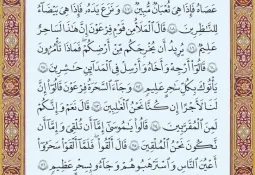 عَصَاهُ فَإِذَا هِيَ ثُعْبَانٌ مُّبِينٌ ۝ وَنَزَعَ يَدَهُۥ فَإِذَا هِيَ بَيْضَآءُ
لِلنَّٰظِرِينَ ۝ قَالَ ٱلْمَلَأُ مِن قَوْمِ فِرْعَوْنَ إِنَّ هَٰذَا لَسَٰحِرٌ
عَلِيمٌ ۝ يُرِيدُ أَن يُخْرِجَكُم مِّنْ أَرْضِكُمْ ۖ فَمَاذَا تَأْمُرُونَ
۝ قَالُوٓا۟ أَرْجِهْ وَأَخَاهُ وَأَرْسِلْ فِى ٱلْمَدَآئِنِ حَٰشِرِينَ ۝
يَأْتُوكَ بِكُلِّ سَٰحِرٍ عَلِيمٍ ۝ وَجَآءَ ٱلسَّحَرَةُ فِرْعَوْنَ قَالُوٓا۟ إِنَّ
لَنَا لَأَجْرًا إِن كُنَّا نَحْنُ ٱلْغَٰلِبِينَ ۝ قَالَ نَعَمْ وَإِنَّكُمْ
لَمِنَ ٱلْمُقَرَّبِينَ ۝ قَالُوا۟ يَٰمُوسَىٰٓ إِمَّآ أَن تُلْقِىَ وَإِمَّآ أَن
نَّكُونَ نَحْنُ ٱلْمُلْقِينَ ۝ قَالَ أَلْقُوا۟ ۖ فَلَمَّآ أَلْقَوْا۟ سَحَرُوٓا۟
أَعْيُنَ ٱلنَّاسِ وَٱسْتَرْهَبُوهُمْ وَجَآءُو بِسِحْرٍ عَظِيمٍ ۝